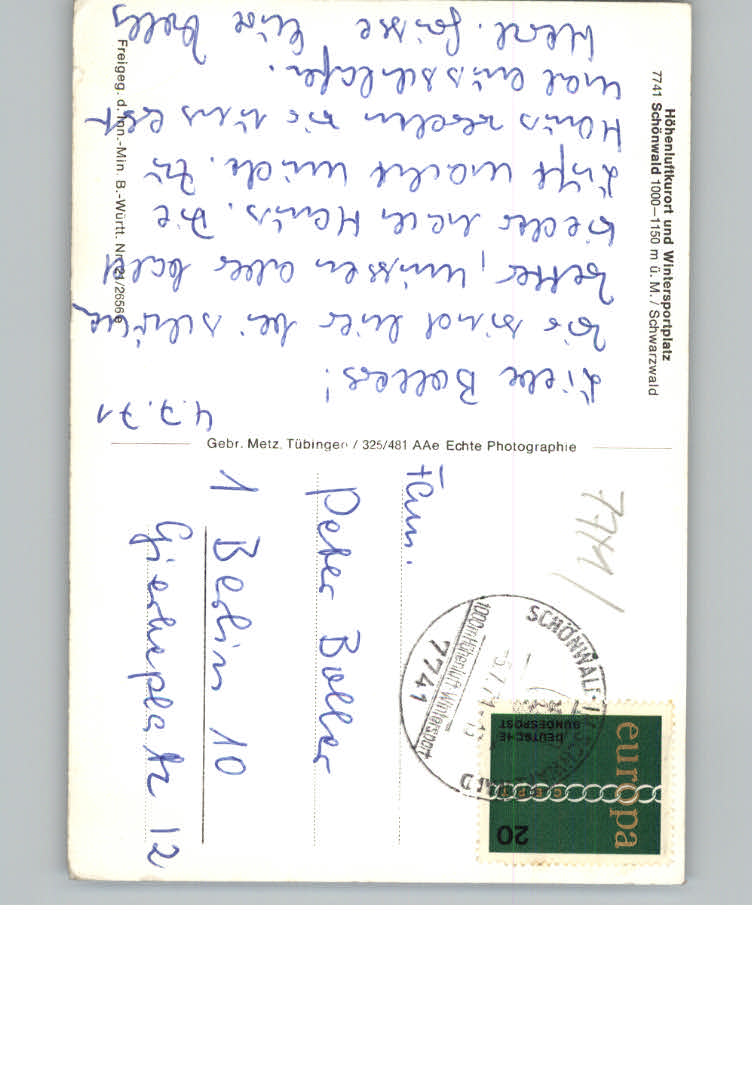 Höhenluftkurort und Wintersportplatz
7741 Schönwald 1000–1150 m ü. M./Schwarzwald
4.7.71
Liebe Bollers!
Wir sind hier bei schönem
Wetter, müssen aber bald
wieder nach Haus. Die
Luft macht müde. Zu
Haus wollen wir uns erst
mal ausschlafen.
Herzl. Grüsse Eure
Freigeg. d. Inn.-Min. B.-Württ. Nr. 21/26566
Gebr. Metz, Tübingen / 325/481 AAe Echte Photographie
Fam.
Peter Boller
1 Berlin 10
Gierkeplatz 12
7741/
SCHÖNWALD
SCHWARZWALD
1000m Höhenluft Wintersport
7741
europa
CEPT
DEUTSCHE
BUNDESPOST
20